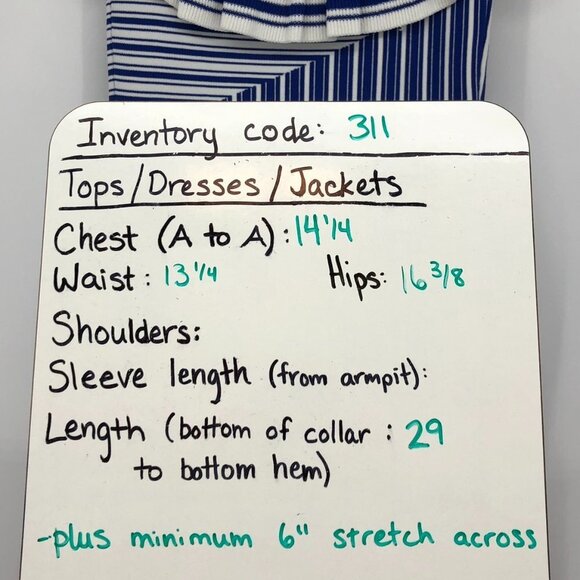 Inventory code: 311
Tops/Dresses/Jackets
Chest (A to A): 14 1/4
Waist: 13 1/4 Hips: 16 3/8
Shoulders:
Sleeve length (from armpit):
Length (bottom of collar : 29
to bottom hem)
-plus minimum 6" stretch across